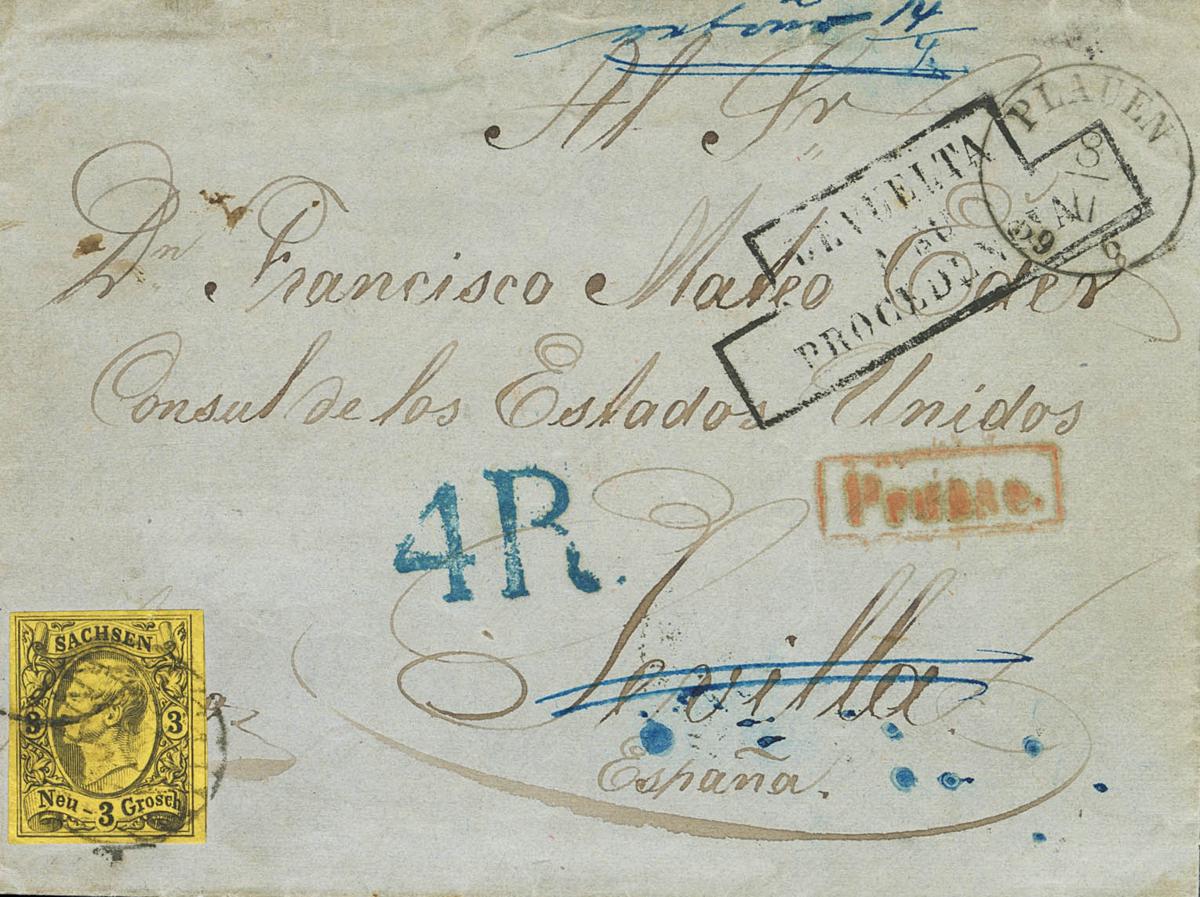 Al Sr
Dn Francisco Mateo Eder
Consul de los Estados Unidos
Sevilla
España.
DEVUELTA
A SU
PROCEDENCIA
PLAUEN
8/VI
59
6
4R.
Prusse.
SACHSEN
3 3
Neu-3 Grosch